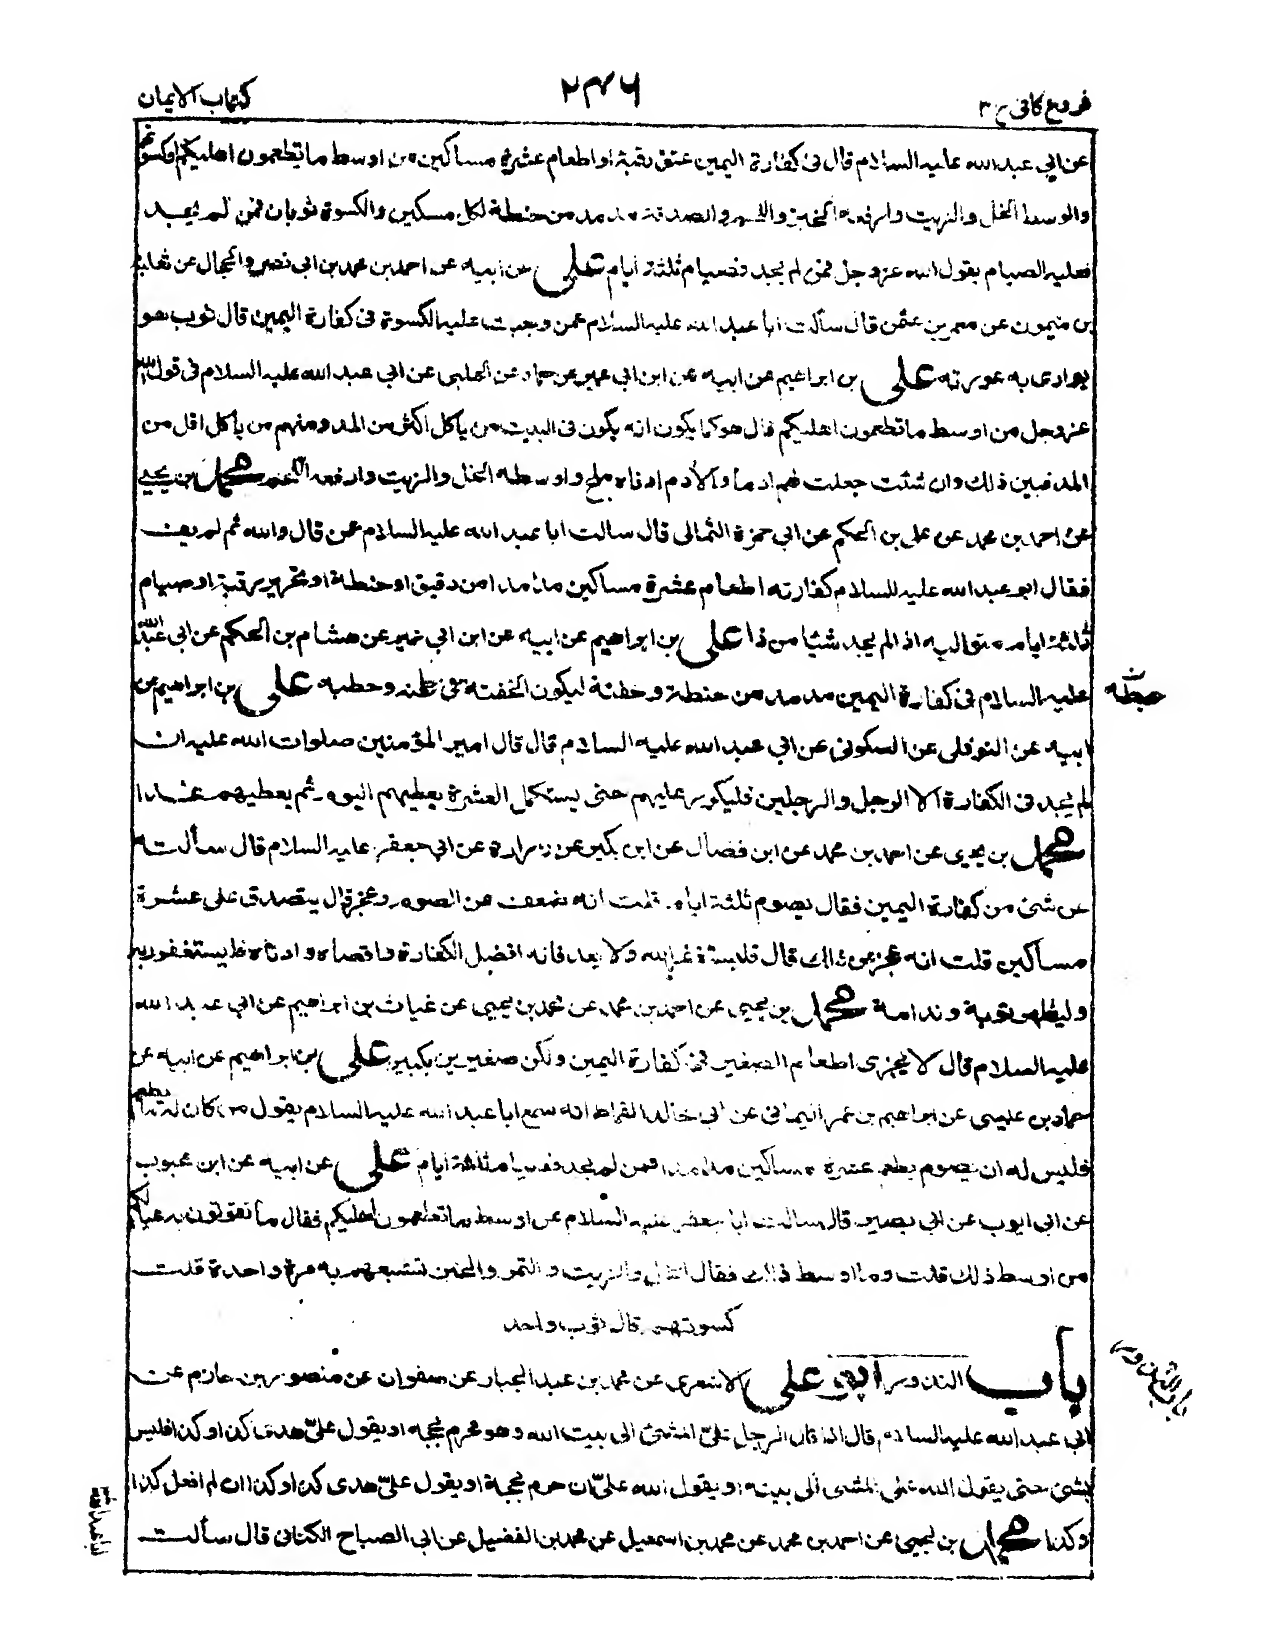 فروع كافى ج ٣
٢٣٦
كتاب الايمان
عن ابي عبد الله عليه السلام قال فى كفارة اليمين عتق رقبة او اطعام عشرة مساكين من اوسط ما تطعمون اهليكم او كسوتهم
والوسط الخل والزيت وارفعه الخبز واللحم والصدقة مد مد من حنطة لكل مسكين والكسوة ثوبان فمن لم يجد
فعليه الصيام يقول الله عز وجل فمن لم يجد فصيام ثلثة ايام على عن ابيه عن احمد بن محمد بن ابي نصر والحجال عن ثعلبة
بن ميمون عن معمر بن عثمن قال سألت ابا عبد الله عليه السلام عمن وجبت عليه الكسوة فى كفارة اليمين قال ثوب هو
يوارى به عورته على بن ابراهيم عن ابيه عن ابن ابي عمير عن حماد عن الحلبى عن ابي عبد الله عليه السلام فى قول الله
عز وجل من اوسط ما تطعمون اهليكم قال هو كما يكون انه يكون فى البيت من يأكل اكثر من المد ومنهم من يأكل اقل من
المد فبين ذلك وان شئت جعلت لهم ادما والادم ادناه ملح واوسطه الخل والزيت وارفعه اللحم محمد بن يحيى
عن احمد بن محمد عن على بن الحكم عن ابي حمزة الثمالى قال سالت ابا عبد الله عليه السلام عمن قال والله ثم لم يف
فقال ابو عبد الله عليه السلام كفارته اطعام عشرة مساكين مدا مدا من دقيق او حنطة او تحرير رقبة او صيام
ثلاثة ايام متوالية اذا لم يجد شيئا من ذا على بن ابراهيم عن ابيه عن ابن ابي عمير عن هشام بن الحكم عن ابي عبد الله
عليه السلام فى كفارة اليمين مد مد من حنطة وحفنة ليكون الحفنة فى طحنه وحطبه على بن ابراهيم عن
ابيه عن النوفلى عن السكونى عن ابي عبد الله عليه السلام قال قال امير المؤمنين صلوات الله عليه ان
لم يجد فى الكفارة الا الرجل والرجلين فليكرر عليهم حتى يستكمل العشرة يعطيهم اليوم ثم يعطيهم غدا
محمد بن يحيى عن احمد بن محمد عن ابن فضال عن ابن بكير عن زرارة عن ابي جعفر عليه السلام قال سألته
عن شئ من كفارة اليمين فقال يصوم ثلثة ايام قلت انه ضعف عن الصوم وعجز قال يتصدق على عشرة
مساكين قلت انه عجز عن ذلك قال فليستغفر الله ولا يعد فانه افضل الكفارة واقصاه وادناه فليستغفر ربه
وليظهر توبة وندامة محمد بن يحيى عن احمد بن محمد عن محمد بن يحيى عن غياث بن ابراهيم عن ابي عبد الله
عليه السلام قال لا يجزى اطعام الصغير فى كفارة اليمين ولكن صغيرين بكبير على بن ابراهيم عن ابيه عن
حماد بن عيسى عن ابراهيم بن عمر اليمانى عن ابي خالد القماط انه سمع ابا عبد الله عليه السلام يقول من كان له ما يطعم
فليس له ان يصوم يطعم عشرة مساكين مدا مدا فمن لم يجد فصيام ثلاثة ايام على عن ابيه عن ابن محبوب
عن ابي ايوب عن ابي بصير قال سالت ابا جعفر عليه السلام عن اوسط ما تطعمون اهليكم فقال ما تقوتون به عيالكم
من اوسط ذلك قلت وما اوسط ذلك فقال الخل والزيت والتمر والخبز تشبعهم به مرة واحدة قلت
كسوتهم قال ثوب واحد
باب النذور ابو على الاشعرى عن محمد بن عبد الجبار عن صفوان عن منصور بن حازم عن
ابي عبد الله عليه السلام قال اذا قال الرجل علىّ المشئ الى بيت الله وهو محرم بحجه او يقول علىّ هدى كذا وكذا فليس
بشئ حتى يقول الله على المشى الى بيته او يقول لله علىّ ان حرم بحجة او يقول علىّ هدى كذا وكذا ان لم افعل كذا
وكذا محمد بن يحيى عن احمد بن محمد عن محمد بن اسمعيل عن محمد بن الفضيل عن ابي الصباح الكنانى قال سألت
باب النذور